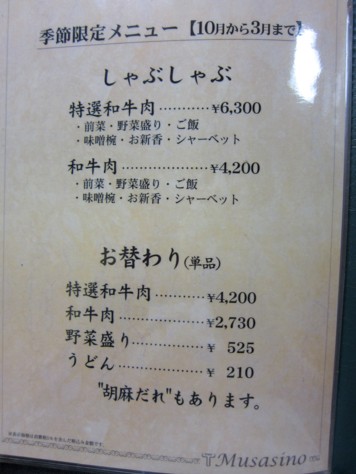 季節限定メニュー【10月から3月まで】
しゃぶしゃぶ
特選和牛肉…………¥6,300
・前菜・野菜盛り・ご飯
・味噌椀・お新香・シャーベット
和牛肉………………¥4,200
・前菜・野菜盛り・ご飯
・味噌椀・お新香・シャーベット
お替わり(単品)
特選和牛肉…………¥4,200
和牛肉………………¥2,730
野菜盛り……………¥ 525
うどん………………¥ 210
"胡麻だれ"もあります。
Musasino